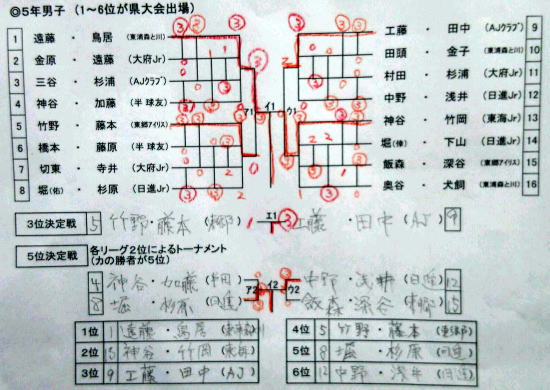 ◎5年男子 (1～6位が県大会出場)
1 遠藤 ・ 鳥居 (東浦森と川)
2 金原 ・ 遠藤 (大府Jr)
3 三谷 ・ 杉浦 (AJクラブ)
4 神谷 ・ 加藤 (半球友)
5 竹野 ・ 藤本 (東郷アイリス)
6 橋本 ・ 藤原 (半球友)
7 切東 ・ 寺井 (大府Jr)
8 堀(佑) ・ 杉原 (日進Jr)
工藤 ・ 田中 (AJクラブ) 9
田頭 ・ 金子 (東浦森と川) 10
村田 ・ 杉浦 (大府Jr) 11
中野 ・ 浅井 (日進Jr) 12
神谷 ・ 竹岡 (東海Jr) 13
堀(倖) ・ 下山 (日進Jr) 14
飯森 ・ 深谷 (東郷アイリス) 15
奥谷 ・ 犬飼 (東浦森と川) 16
ア1 イ1 ウ1
3位決定戦 5 竹野・藤本 エ1 3 工藤・田中 (AJ) 9
5位決定戦 各リーグ2位によるトーナメント
(カの勝者が5位)
4 神谷・加藤 ア2 イ2 ウ2 中野・浅井 (日進) 12
8 堀・杉原 (日進) 飯森・深谷 15
1位 1 遠藤・鳥居
2位 13 神谷・竹岡
3位 9 工藤・田中 (AJ)
4位 5 竹野・藤本
5位 8 堀・杉原 (日進)
6位 12 中野・浅井 (日進)